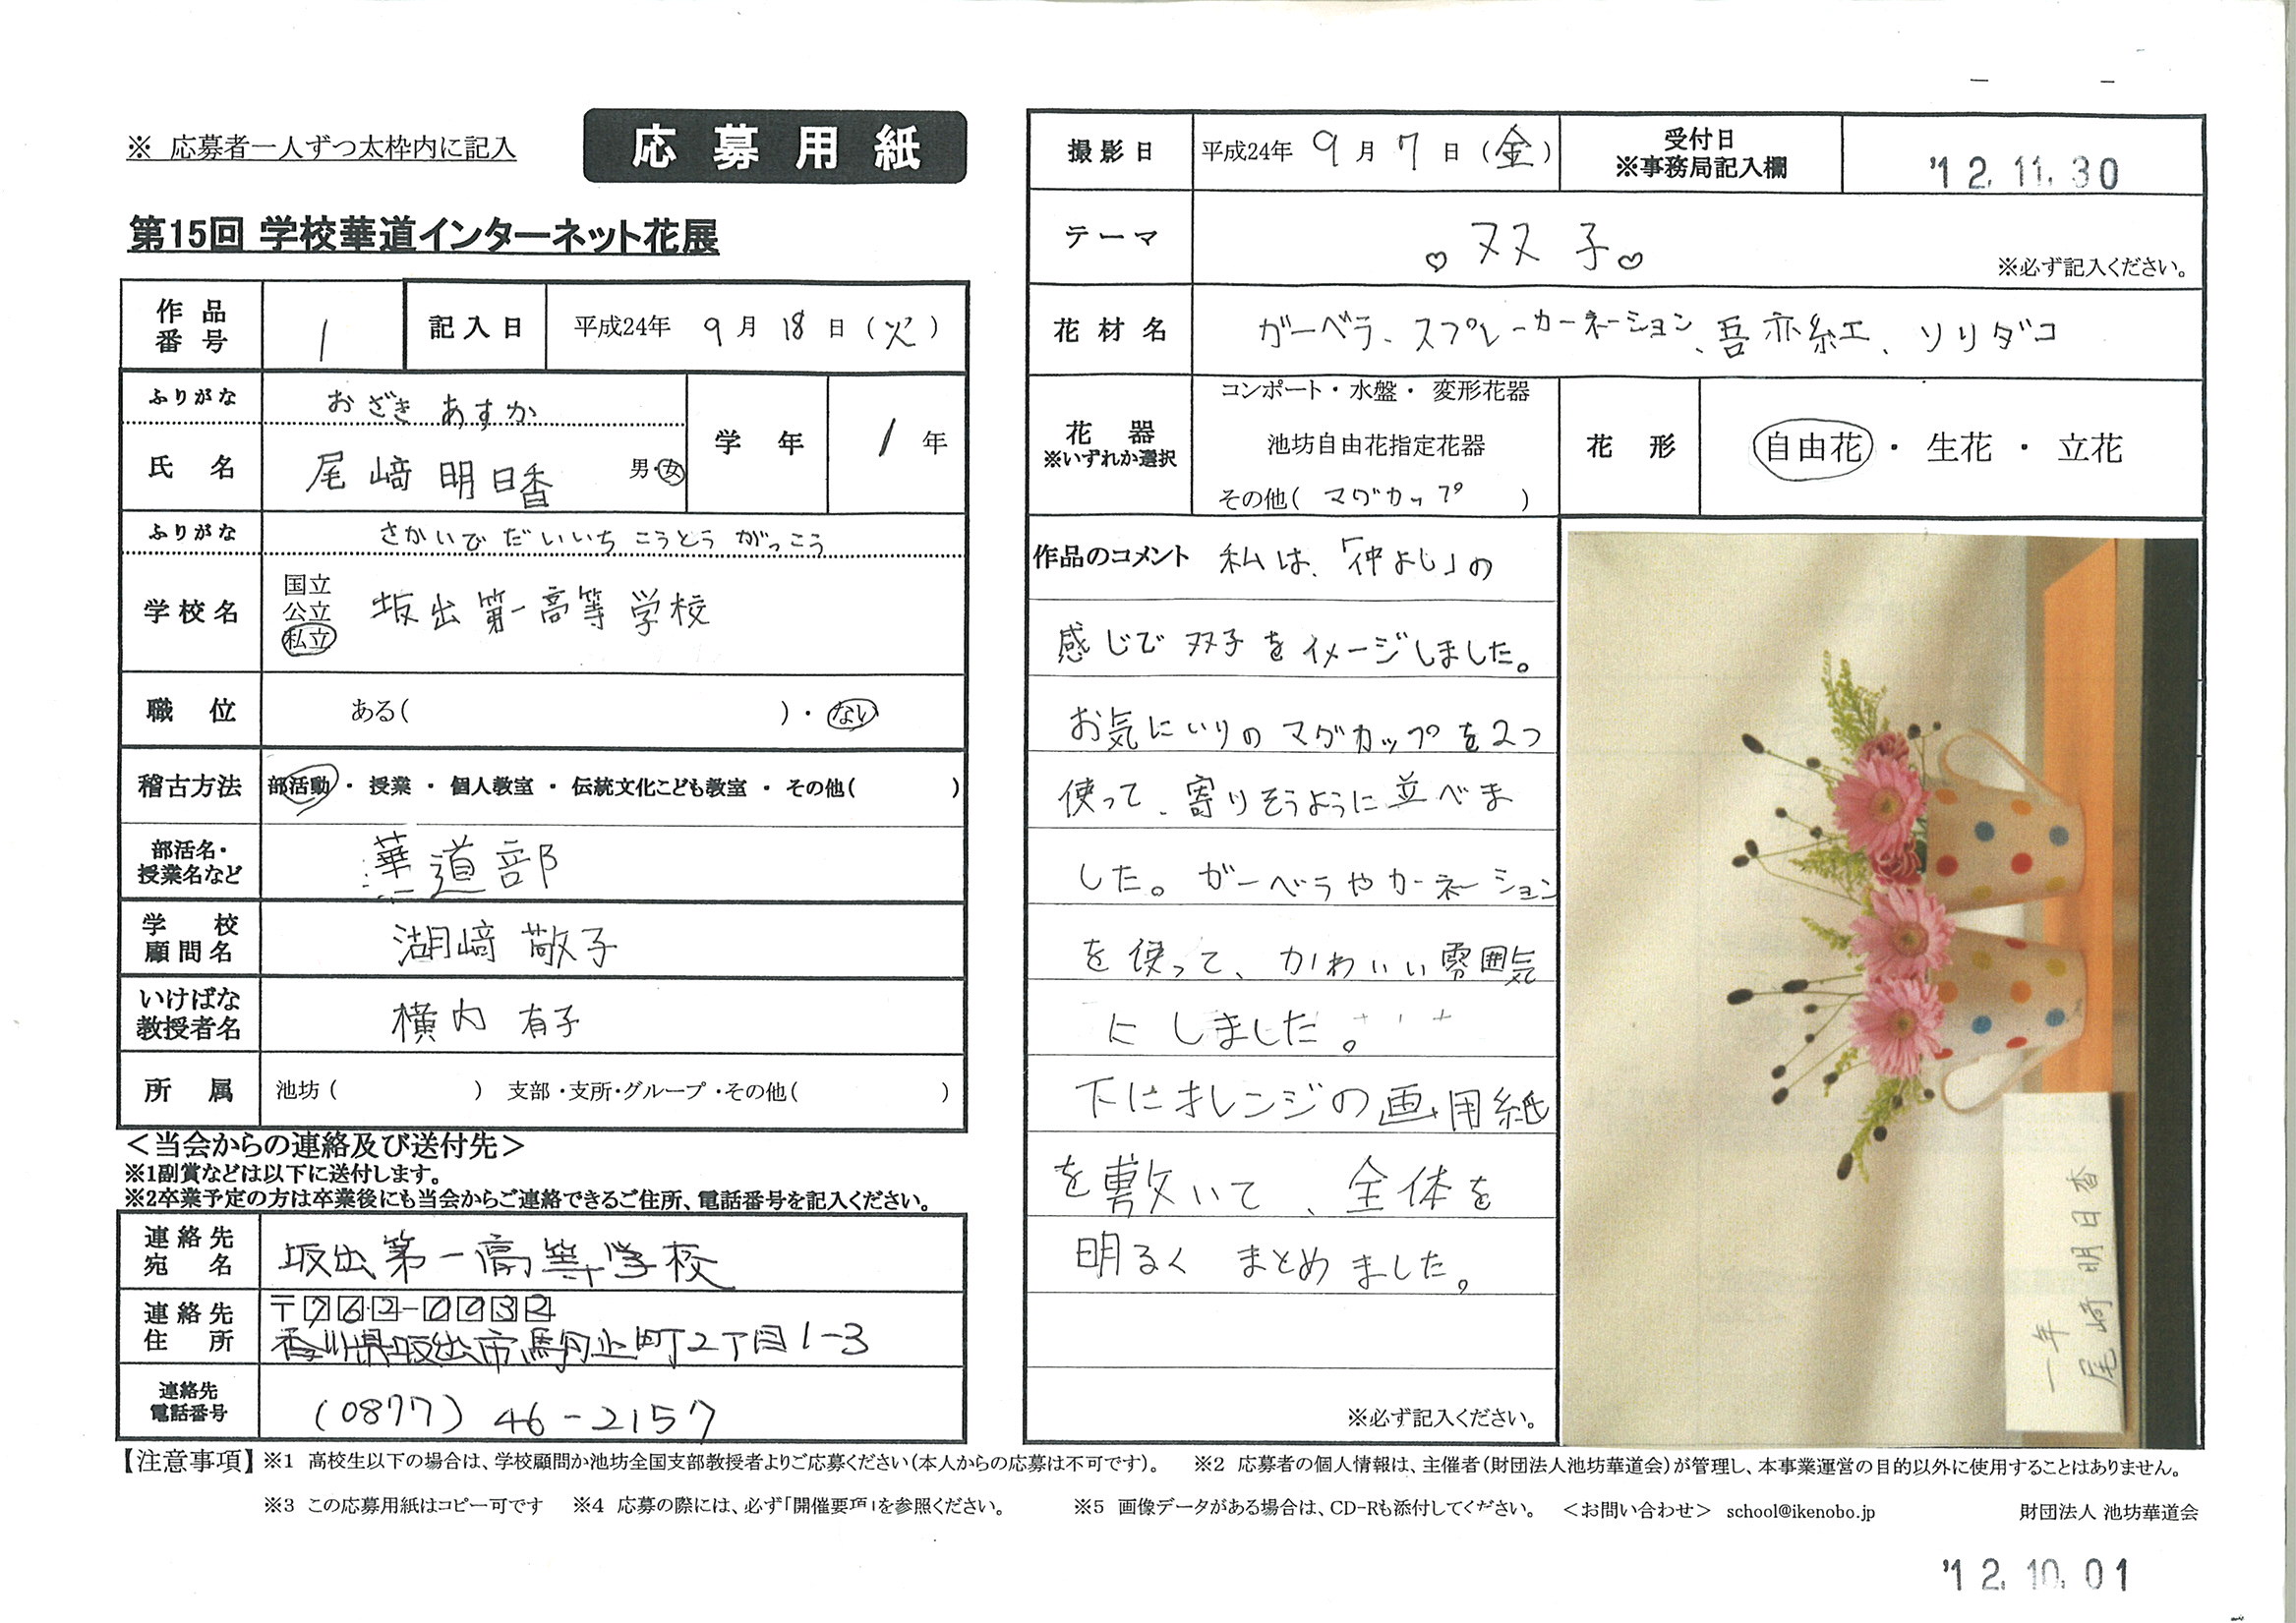 ※ 応募者一人ずつ太枠内に記入
応募用紙
第15回 学校華道インターネット花展
作品番号 1 記入日 平成24年 9月 18日(火)
ふりがな おざき あすか
氏名 尾﨑 明日香 男・女 学年 1年
ふりがな さかいで だいいち こうとう がっこう
学校名 国立 公立 私立 坂出第一高等学校
職位 ある( )・ない
稽古方法 部活動・授業・個人教室・伝統文化こども教室・その他( )
部活名・授業名など 華道部
学校顧問名 湖﨑 敬子
いけばな教授者名 横内 有子
所属 池坊( ) 支部・支所・グループ・その他( )
<当会からの連絡及び送付先>
※1副賞などは以下に送付します。
※2卒業予定の方は卒業後にも当会からご連絡できるご住所、電話番号を記入ください。
連絡先宛名 坂出第一高等学校
連絡先住所 〒762-0032
香川県坂出市駒止町2丁目1-3
連絡先電話番号 (0877) 46-2157
撮影日 平成24年 9月 7日(金) 受付日 ※事務局記入欄 '12.11.30
テーマ ♡双子♡ ※必ず記入ください。
花材名 ガーベラ、スプレーカーネーション、吾亦紅、ソリダコ
花器 ※いずれか選択 コンポート・水盤・変形花器
池坊自由花指定花器
その他( マグカップ )
花形 自由花・生花・立花
作品のコメント 私は、「仲よし」の
感じで双子をイメージしました。
お気にいりのマグカップを2つ
使って、寄りそうように並べま
した。ガーベラやカーネーション
を使って、かわいい雰囲気
にしました。
下にオレンジの画用紙
を敷いて、全体を
明るくまとめました。
※必ず記入ください。
一年
尾﨑明日香
【注意事項】※1 高校生以下の場合は、学校顧問か池坊全国支部教授者よりご応募ください(本人からの応募は不可です)。 ※2 応募者の個人情報は、主催者(財団法人池坊華道会)が管理し、本事業運営の目的以外に使用することはありません。
※3 この応募用紙はコピー可です ※4 応募の際には、必ず「開催要項」を参照ください。 ※5 画像データがある場合は、CD-Rも添付してください。 <お問い合わせ> school@ikenobo.jp 財団法人 池坊華道会
'12.10.01